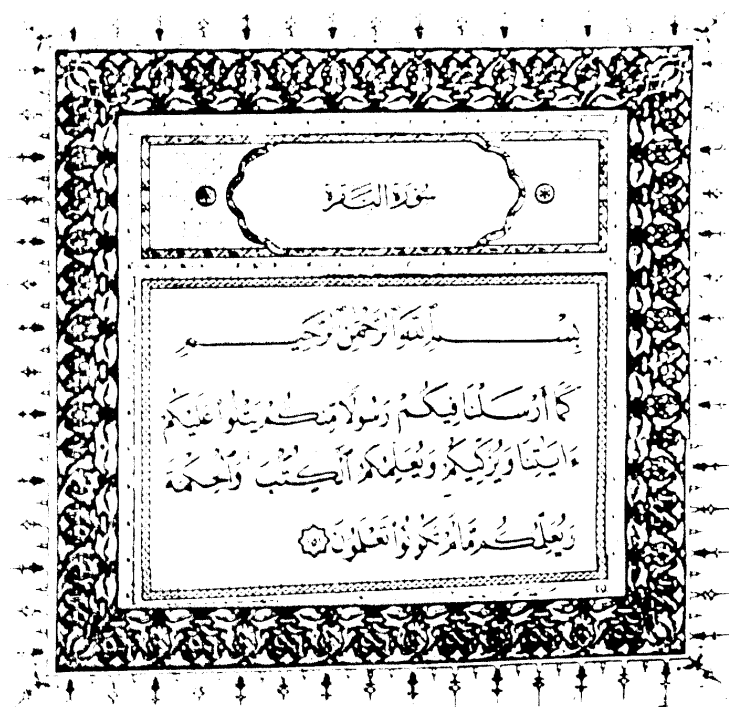 سُورَةُ الْبَقَرَةِ
بِسْمِ اللَّهِ الرَّحْمَٰنِ الرَّحِيمِ
كَمَا أَرْسَلْنَا فِيكُمْ رَسُولًا مِنكُمْ يَتْلُوا عَلَيْكُمْ
ءَايَٰتِنَا وَيُزَكِّيكُمْ وَيُعَلِّمُكُمُ ٱلْكِتَٰبَ وَٱلْحِكْمَةَ
وَيُعَلِّمُكُم مَّا لَمْ تَكُونُوا تَعْلَمُونَ